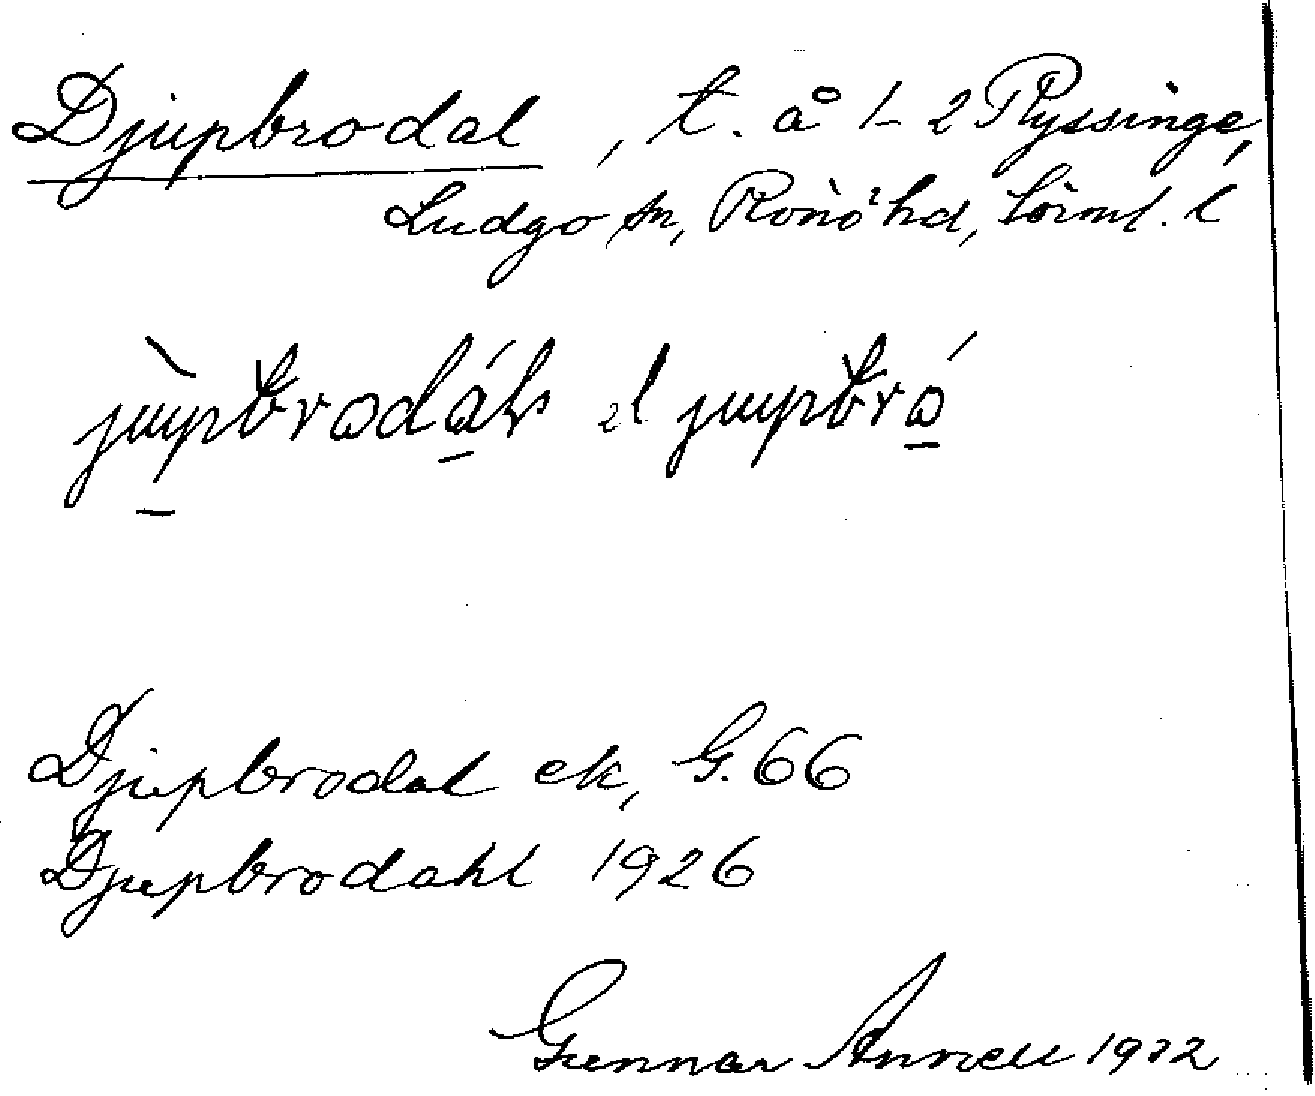 Djupbrodal, t. å 1–2 Ryssinge,
Ludgo sn, Rönö hd, Sörml. l
jupbrodal el jupbro
Djupbrodal ek, G. 66
Djupbrodahl 1926
Gunnar Annell 1932